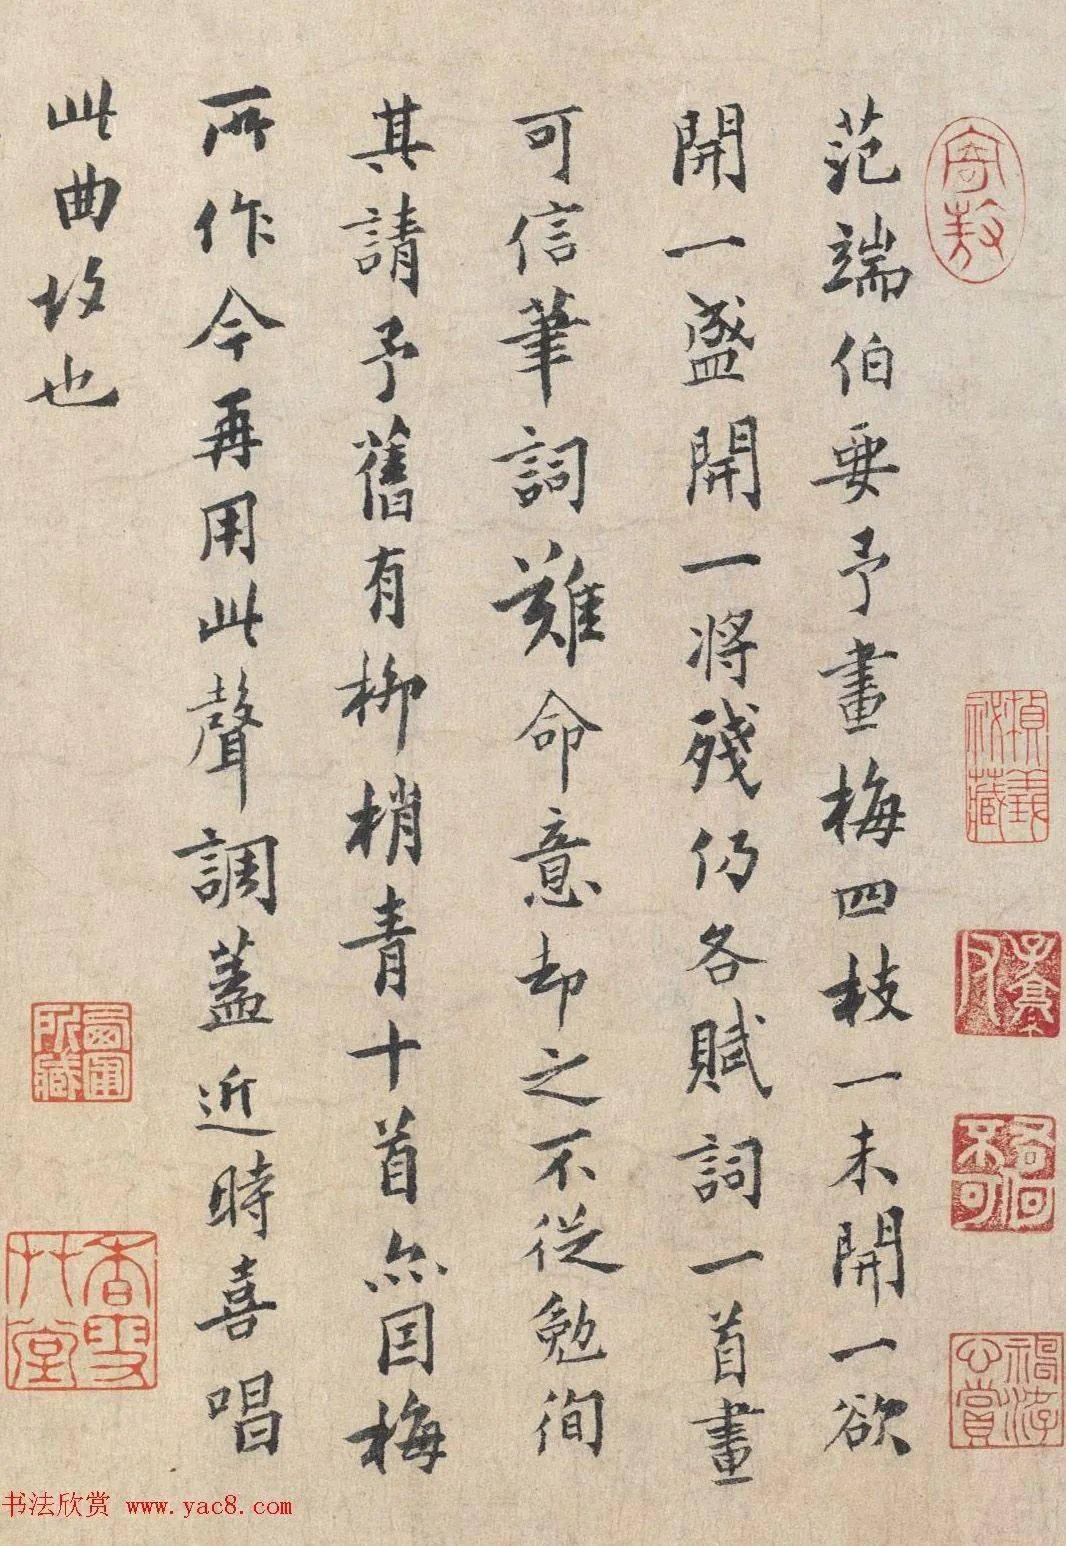 寄敖
范端伯要予畫梅四枝一未開一欲
開一盛開一将殘仍各賦詞一首畫
可信筆詞難命意却之不從勉徇
其請予舊有柳梢青十首亦因梅
所作今再用此聲調蓋近時喜唱
此曲故也
香雪艸堂
书法欣赏 www.yac8.com